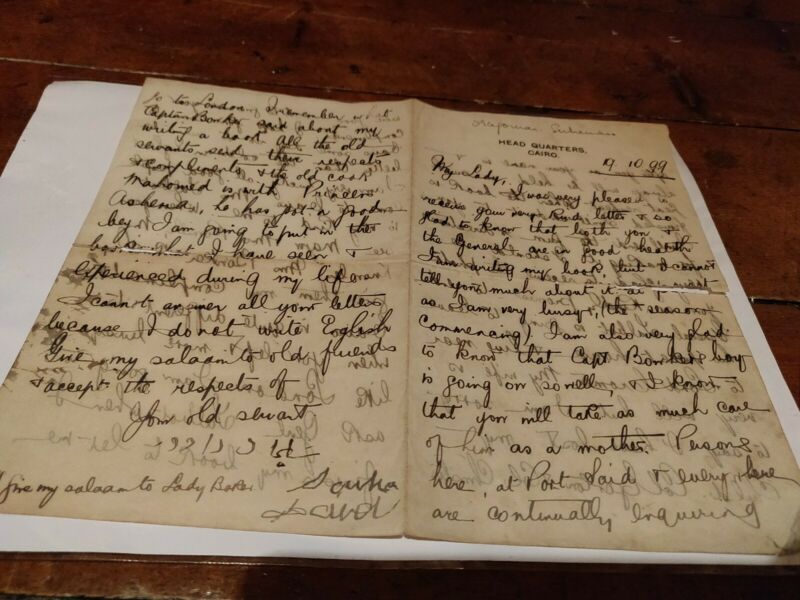 HEAD QUARTERS,
CAIRO.
19.10.99
My Lady, I was very pleased to
receive your very kind letter & so
glad to know that both you &
the General are in good health
I am writing my book but I cannot
tell you much about it at present
as I am very busy, (the season
commencing) I am also very glad
to know that Capt Bowkers boy
is going on so well, & I know
that you will take as much care
of him as a mother. Persons
here, at Port Said & every where
are continually enquiring
to London, I remember what
Captain Bowker said about my
writing a book All the old
servants send their respects
& compliments & the old cook
Mahomed is with Princess
he has got a good
bey I am going to put in the
book what I have seen &
experienced during my life
I cannot answer all your letter
because I do not write English
Give my salaam to old friends
& accept the respects of
Your old servant
Give my salaam to Lady Baker